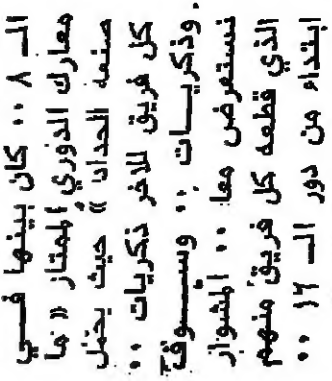 الـ ٨ ٠٠ كان بينها في
معارك الدوري الممتاز « ما
صنعه الحداد » حيث يحمل
كل فريق للآخر ذكريات ٠٠
وذكريــات ٠٠ وســوف
نستعرض معا ٠٠ المشوار
الذي قطعه كل فريق منهم
إبتداء من دور الـ ١٦ ٠٠